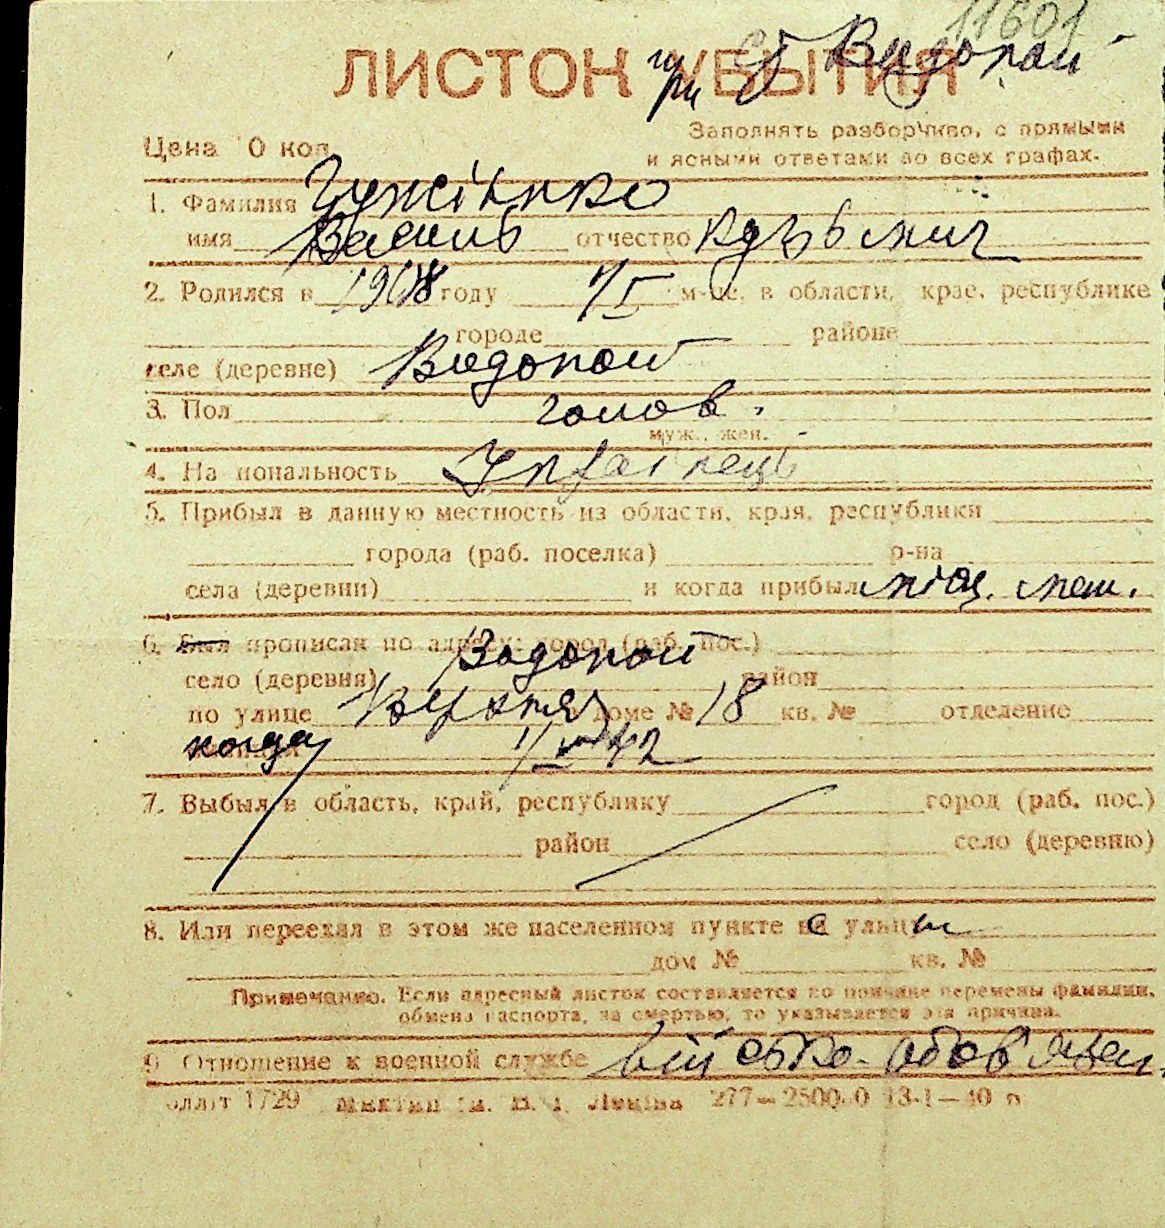 11601
ЛИСТОК УБЫТИЯ
с Водопой
Заполнять разборчиво, с прямыми
Цена 10 коп.
и ясными ответами во всех графах.
1. Фамилия
имя Василь отчество Кузьмич
2. Родился в 1908 году 1/I м-це, в области, крае, республике
городе районе
селе (деревне) Водопой
3. Пол
муж., жен.
4. Национальность Українець
5. Прибыл в данную местность из области, края, республики
города (раб. поселка) р-на
села (деревни) и когда прибыл місц. меш.
6. Был прописан по адресу: город (раб. пос.)
Водопой
село (деревня) район
по улице доме № 18 кв. № отделение
когда
7. Выбыл в область, край, республику город (раб. пос.)
район село (деревню)
8. Или переехал в этом же населенном пункте с улицы
дом № кв. №
Примечание. Если адресный листок составляется по причине перемены фамилии,
обмена паспорта, за смертью, то указывается эта причина.
9. Отношение к военной службе військо-обов'язан.
277—2500.0 13-1—40 р